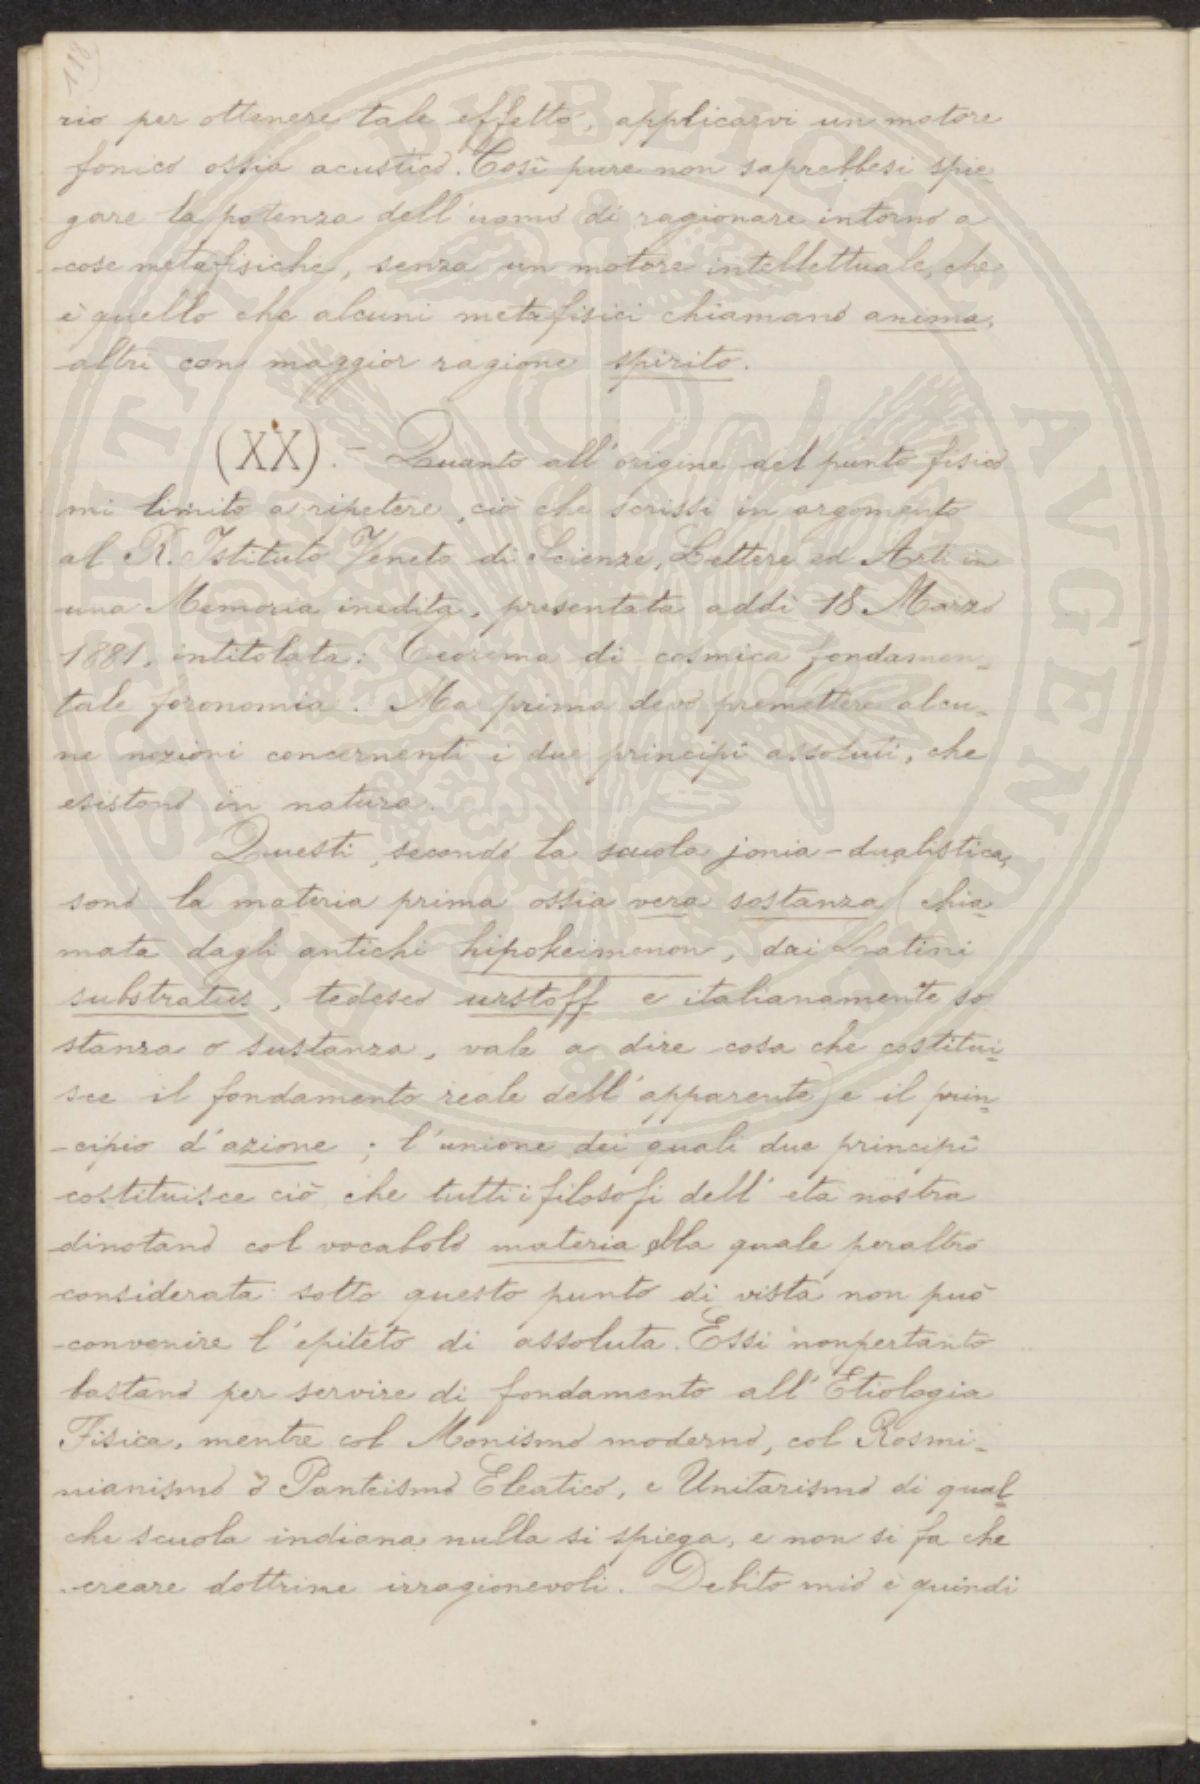 118
rio per ottenere tale effetto, applicarvi un motore
fonico ossia acustico. Così pure non saprebbesi spie-
gare la potenza dell'uomo di ragionare intorno a
cose metafisiche, senza un motore intellettuale, che
è quello che alcuni metafisici chiamano anima,
altri con maggior ragione spirito.
(XX). - Quanto all'origine del punto fisico
mi limito a ripetere, ciò che scrissi in argomento
al R. Istituto Veneto di Scienze, Lettere ed Arti in
una Memoria inedita, presentata addì 18 Marzo
1881, intitolata: Teorema di cosmica fondamen-
tale foronomia. Ma prima devo premettere alcu-
ne nozioni concernenti i due principî assoluti, che
esistono in natura.
Questi, secondo la scuola jonia-dualistica,
sono la materia prima ossia vera sostanza (chia-
mata dagli antichi hipokeimenon, dai Latini
substratus, tedesco urstoff e italianamente so
stanza o sustanza, vale a dire cosa che costitui-
sce il fondamento reale dell'apparente) e il prin-
cipio d'azione; l'unione dei quali due principî
costituisce ciò che tutti i filosofi dell'età nostra
dinotano col vocabolo materia alla quale peraltro
considerata sotto questo punto di vista non può
convenire l'epiteto di assoluta. Essi nonpertanto
bastano per servire di fondamento all'Etiologia
Fisica, mentre col Monismo moderno, col Rosmi-
nianismo o Panteismo Eleatico, e Unitarismo di qual-
che scuola indiana nulla si spiega, e non si fa che
creare dottrine irragionevoli. Debito mio è quindi